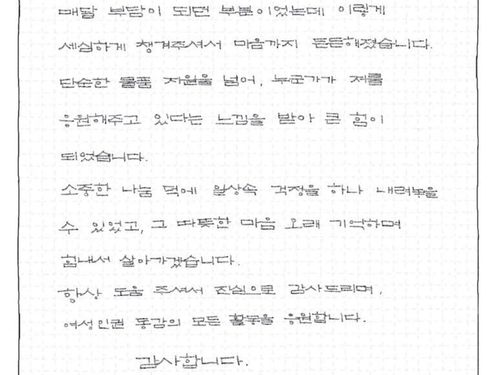 매달 부담이 되던 부분이었는데 이렇게
세심하게 챙겨주셔서 마음까지 든든해졌습니다.
단순한 물품 지원을 넘어, 누군가가 저를
응원해주고 있다는 느낌을 받아 큰 힘이
되었습니다.
소중한 나눔 덕에 일상속 걱정을 하나 내려놓을
수 있었고, 그 따뜻한 마음 오래 기억하며
힘내서 살아가겠습니다.
항상 도움 주셔서 진심으로 감사드리며,
여성인권 동감의 모든 활동을 응원합니다.
감사합니다.